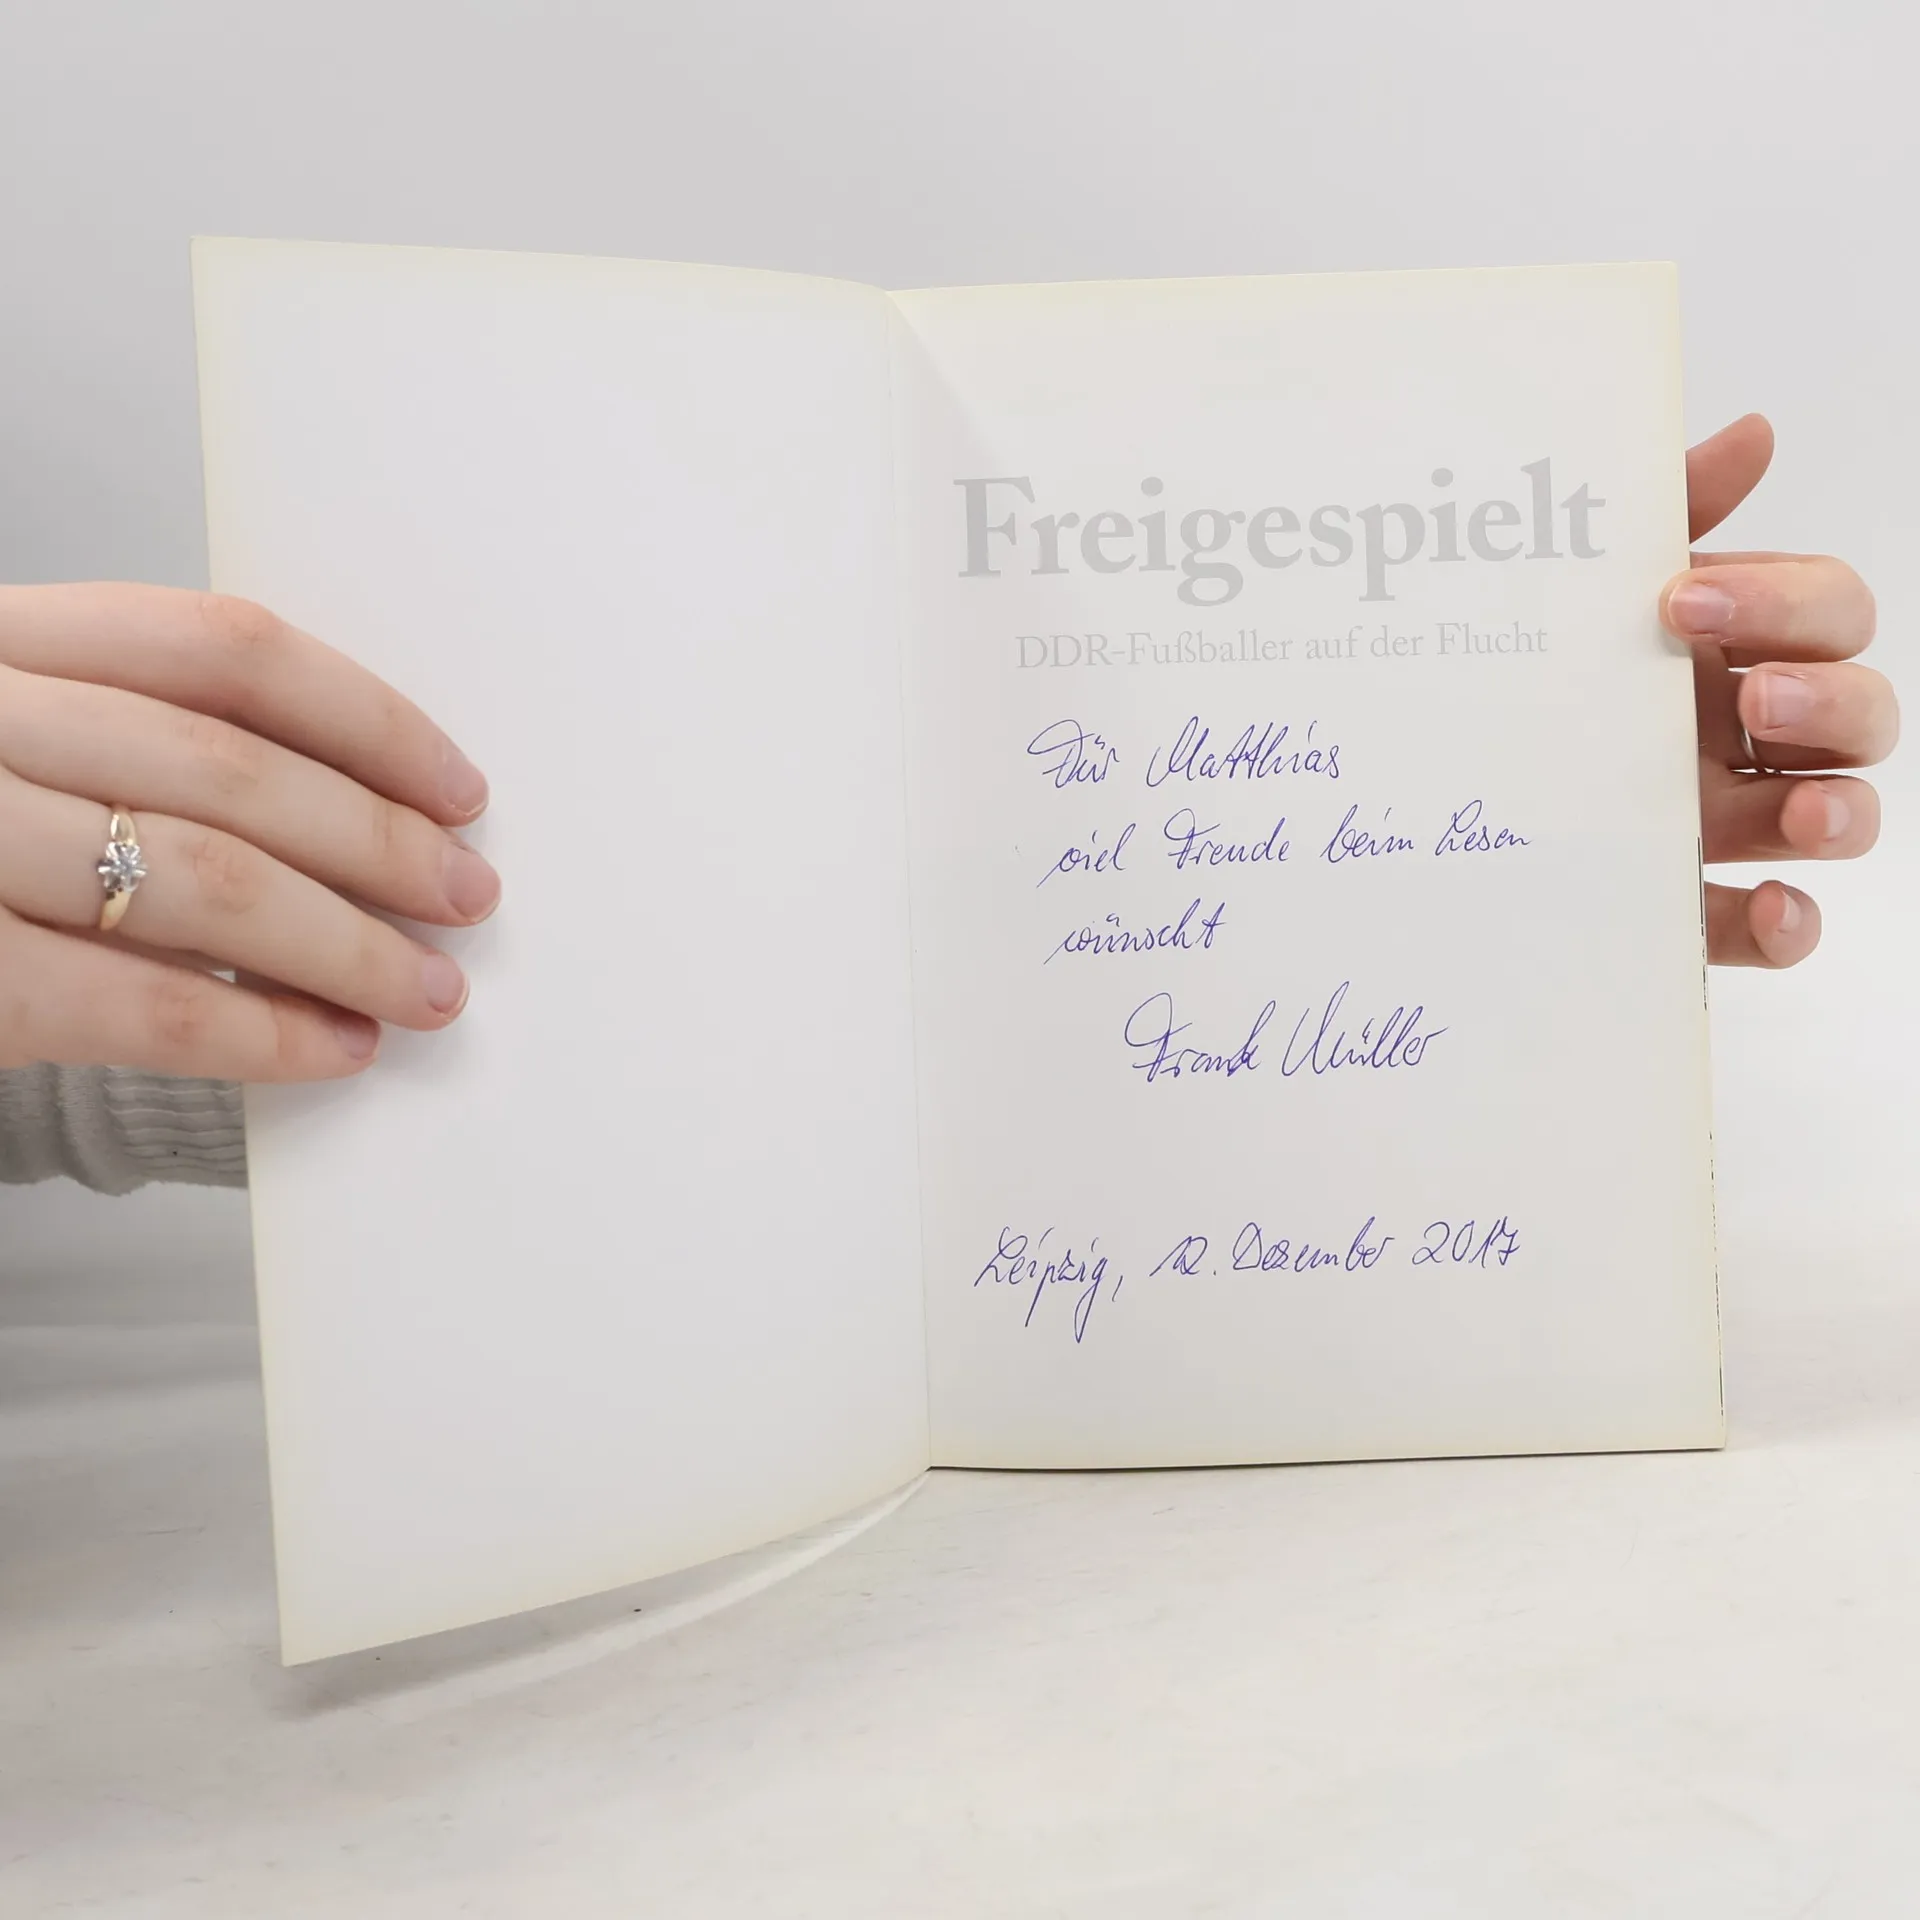 Freigespielt
DDR-Fußballer auf der Flucht
Für Matthias
viel Freude beim Lesen
wünscht
Frank Müller
Leipzig, 12. Dezember 2017